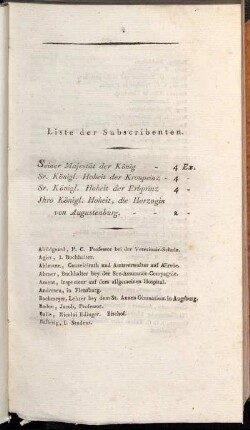 Liste der Subscribenten.
Seiner Majestät der König - 4 Ex.
Sr. Königl. Hoheit der Kronprinz - 4 -
Sr. Königl. Hoheit der Erbprinz 4 -
Ihro Königl. Hoheit, die Herzogin
von Augustenburg. - 2 -
Abildgaard, P. C. Professor bei der Veterinair-Schule.
Agier, i. Buchhalter.
Ahlmann, Cancelirath und Amtsverwalter auf
Ahrner, Buchhalter bey der See-Assecuranz-Compagnie.
Asmus, Inspecteur auf dem allgemeinen Hospital.
Andresen, in Flensburg.
Buchmeyer, Lehrer bey dem St. Annen Gymnasium in Augsburg.
Barber, Jacob, Professor.
Balle, Nicolai Edinger. Bischof.
Studios.